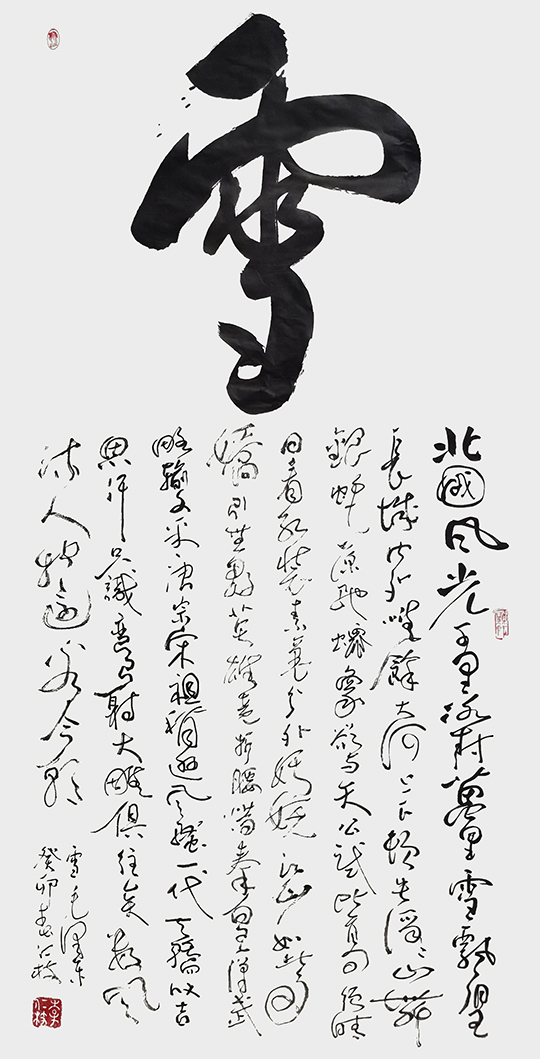 雪
北國风光千里冰封萬里雪飄望
長城内外唯餘大河上下頓失滔滔山舞
銀蛇原馳蠟象欲与天公試比高須晴
日看紅裝素裹分外妖嬈江山如此多
嬌引無數英雄竞折腰惜秦皇漢武
略輸文采唐宗宋祖稍遜风騷一代天驕成吉
思汗只識彎弓射大雕俱往矣數风
流人物還看今朝
雪毛澤东
癸卯春仁枝